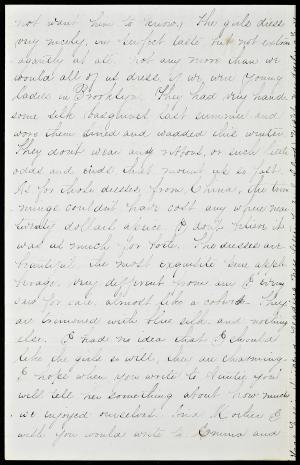 not want him to know. The girls dress
very nicely, in perfect taste but not extrav
agantly at all. Not any more than we
would all of us dress if we were young
ladies in Brooklyn. They had very hand
some silk basquines last summer and
wore them lined and wadded this winter.
They dont wear any ribbons, or such little
odds and ends that mount up so fast.
As for those dresses, from China, the trim
mings couldn't have cost any where near
twenty dollars apiece I don't believe it
was as much for both. The dresses are
beautiful, the most exquisite
very different from any I every
saw for sale almost like a cobweb. They
are trimmed with blue silk and nothing
else. I had no idea that I should
like the girls so well, they are charming.
I hope when you write to Auntie you
will tell her something about how much
we enjoyed ourselves. And Mother I
wish you would write to Emma and